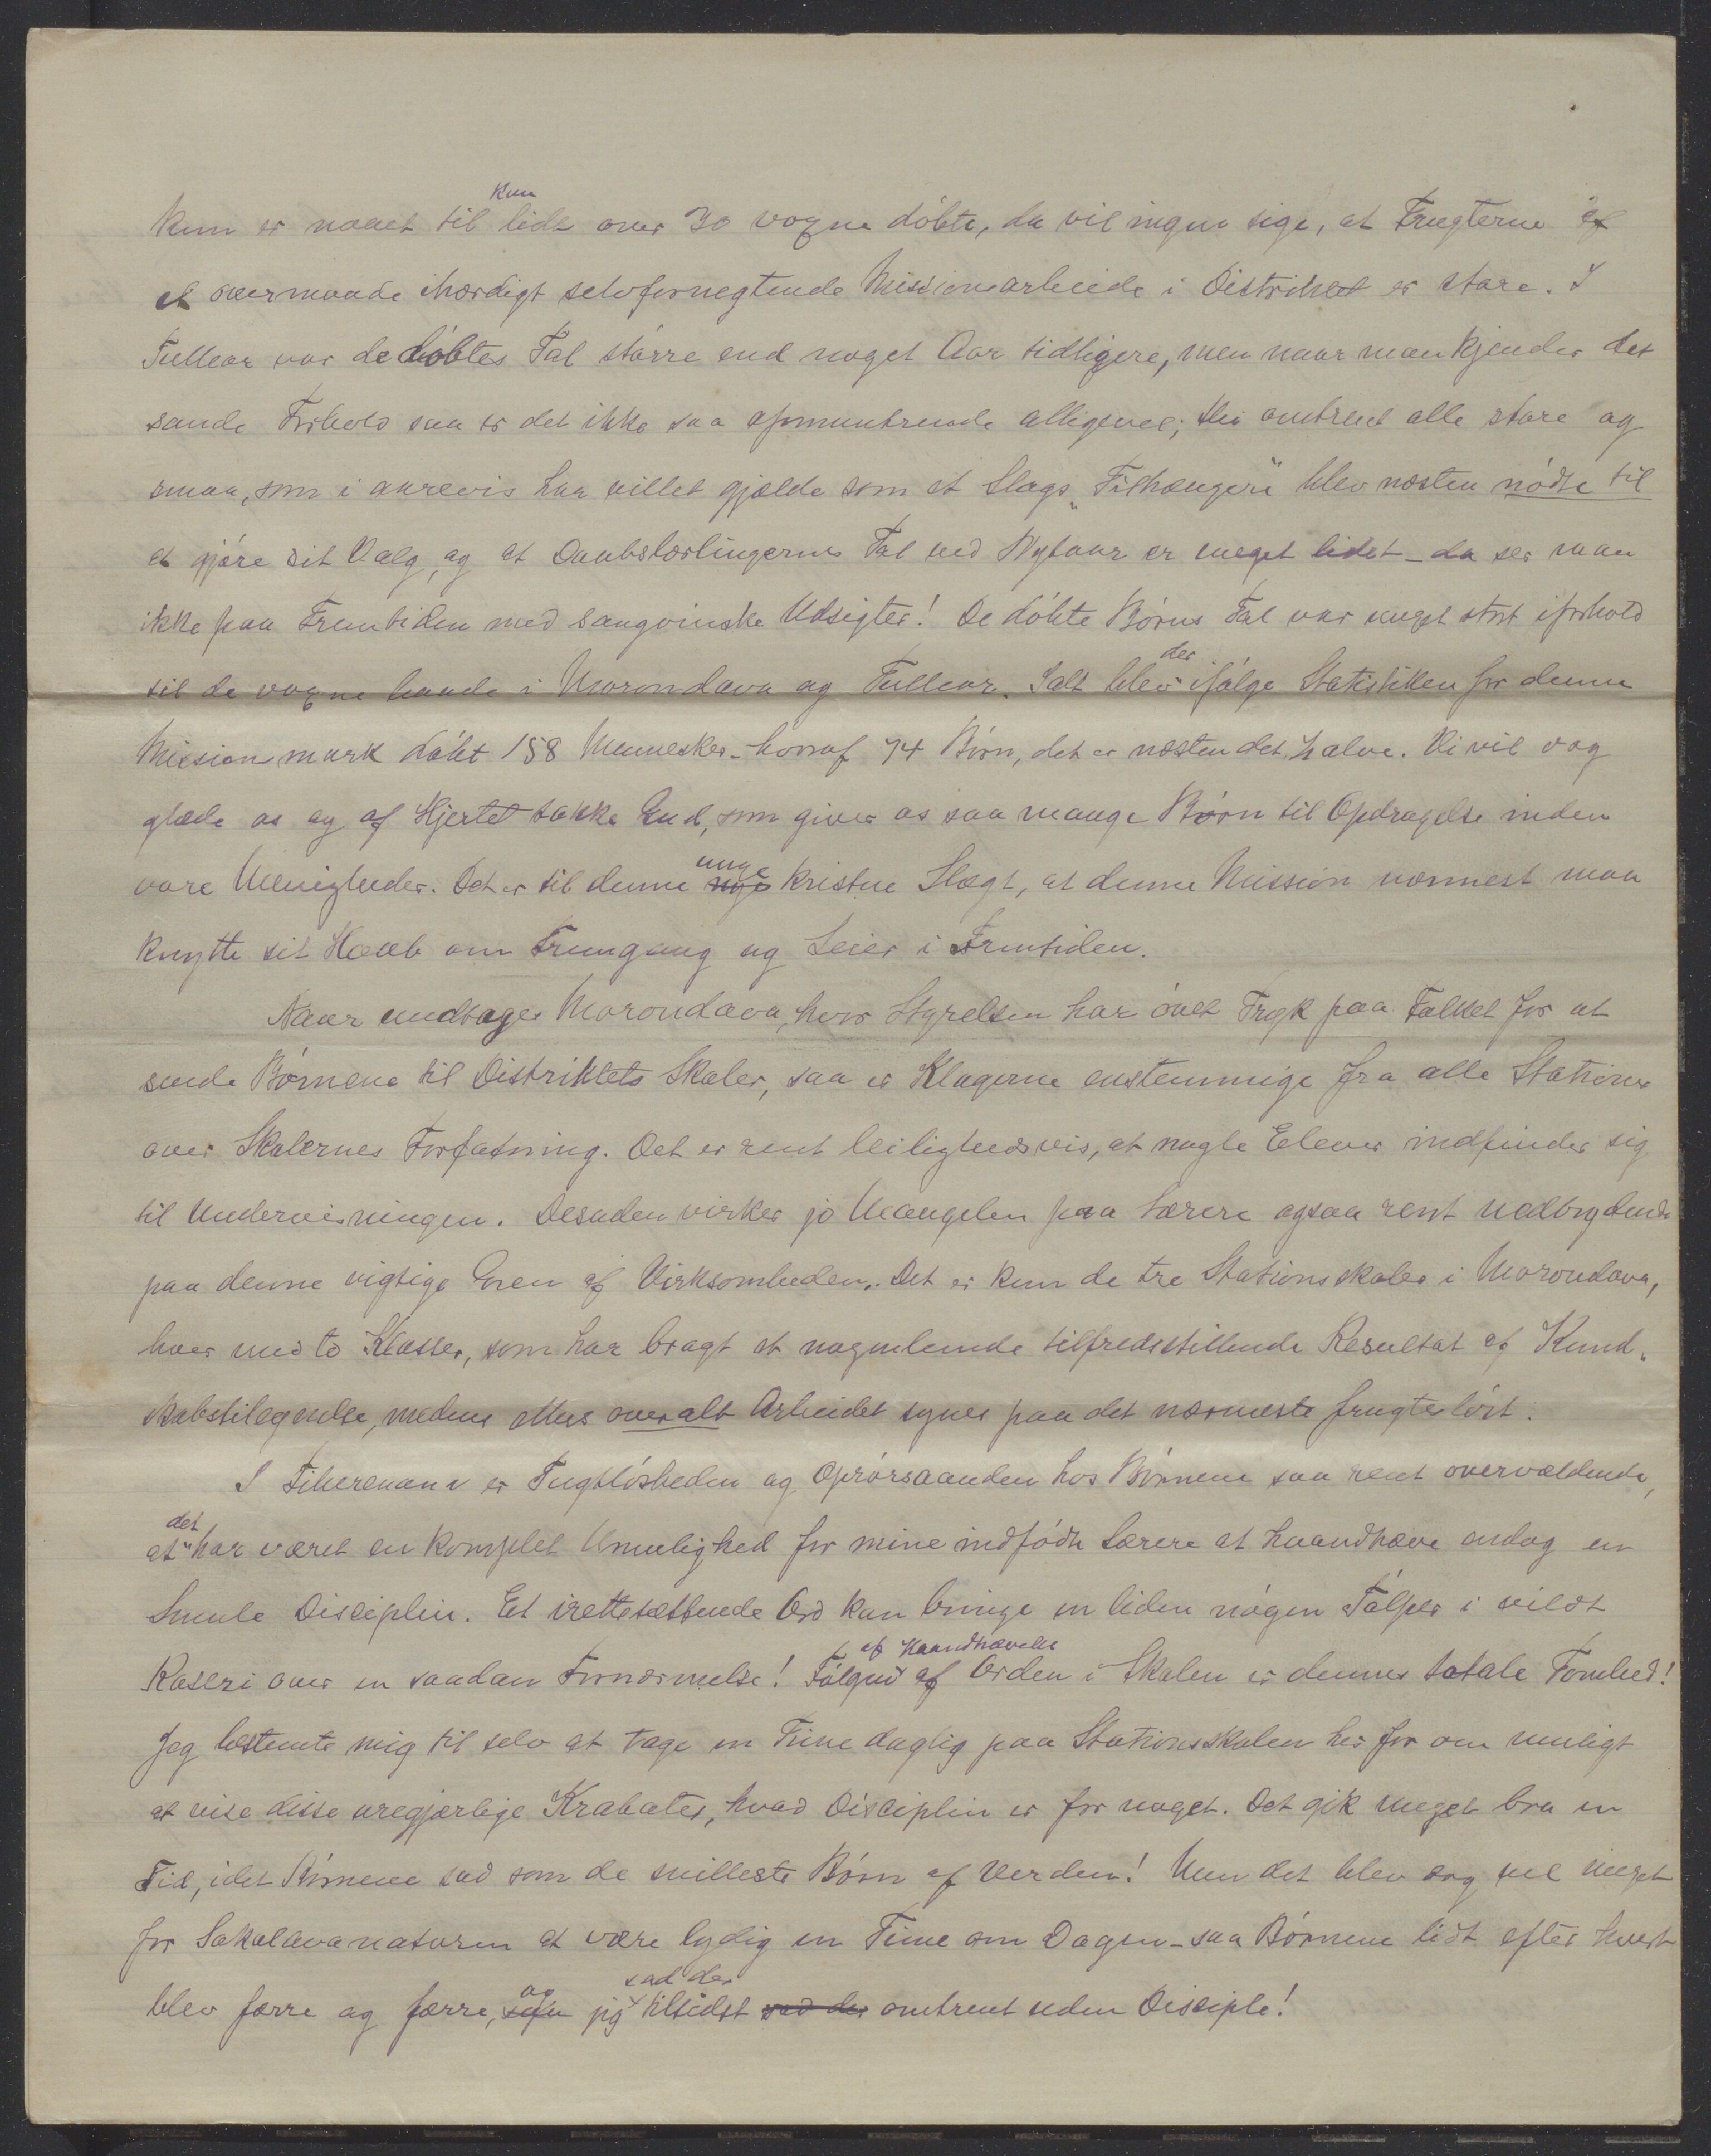 kun er naaet til kun lidt over 30 voxne döbte, da vil ingen sige, at Frugterne af
et overmaade ihærdigt selvfornegtende Missionsarbeide i Distriktet er store. I
Tullear var de döbtes Tal större end noget Aar tidligere, men naar man kjender det
sande Forhold saa er det ikke saa opmuntrende alligevel; thi omtrent alle store og
smaa, som i aarevis har villet gjælde som et Slags „Tilhængere" blev næsten nödte til
at gjöre sit Valg, og at Daabslærlingernes Tal ved Nytaar er meget lidet – da ser man
ikke paa Fremtiden med sangvinske Udsigter! De döbte Börns Tal var meget stort iforhold
til de voxne baade i Morondava og Tullear. Ialt blev der ifölge Statistiken for denne
Missionsmark döbt 158 Mennesker – hvoraf 74 Börn, det er næsten det halve. Vi vil dog
glæde os og af Hjertet takke Gud, som giver os saa mange Börn til Opdragelse inden
vore Menigheder. Det er til denne unge kristne Slægt, at denne Mission nærmest maa
knytte sit Haab om Fremgang og Seier i Fremtiden.
Naar undtages Morondava, hvor Styrelsen har övet Tryk paa Folket for at
sende Börnene til Distriktets Skoler, saa er Klagerne enstemmige fra alle Stationer
over Skolernes Forfatning. Det er rent leilighedsvis, at nogle Elever indfinder sig
til Undervisningen. Desuden virker jo Mangelen paa Lærere ogsaa rent nedbrydende
paa denne vigtige Gren af Virksomheden. Det er kun de tre Stationsskoler i Morondava,
hver med to Klasser, som har bragt et nogenlunde tilfredsstillende Resultat af Kund-
skabstilegnelse, medens ellers overalt Arbeidet synes paa det nærmeste frugteslöst.
I Fiherenana er Tugtlösheden og Oprörsaanden hos Börnene saa rent overvældende,
at det har været en komplet Umulighed for mine indfödte Lærere at haandhæve endog en
Smule Disciplin. Et irettesættende Ord kan bringe en liden nögen Tölper i vildt
Raseri over en saadan Fornærmelse! Fölgen af Haandhævelse af Orden i Skolen er dennes totale Tomhed!
Jeg bestemte mig til selv at tage en Time daglig paa Stationsskolen her for om muligt
at vise disse uregjærlige Krabater, hvad Disciplin er for noget. Det gik meget bra en
Tid, idet Börnene sad som de snilleste Börn af Verden! Men det blev dog vel meget
for Sakalavanaturen at være lydig en Time om Dagen – saa Börnene lidt efter hvert
blev færre og færre, og jeg sad der tilsidst sad der omtrent uden Disciple!